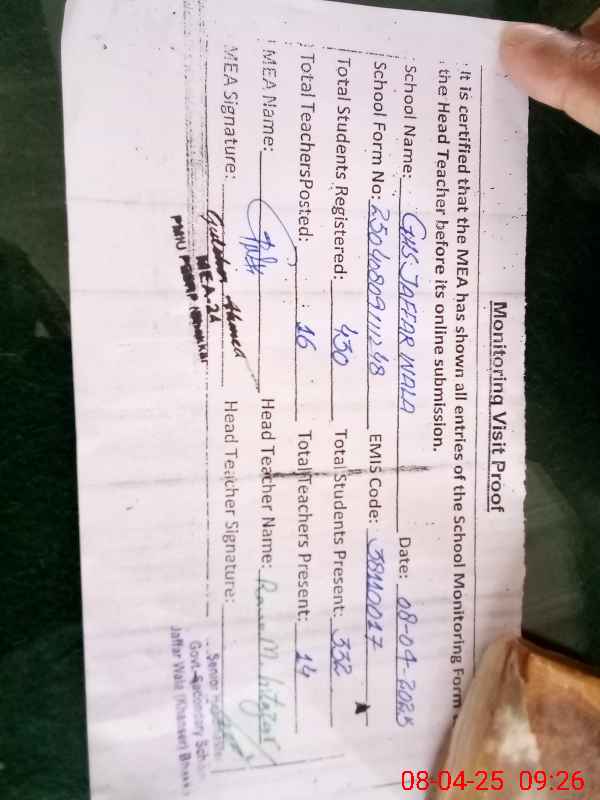 Monitoring Visit Proof
It is certified that the MEA has shown all entries of the School Monitoring Form
the Head Teacher before its online submission.
School Name: GHS JAFFAR WALA Date: 08-04-2025
School Form No: EMIS Code: 38110017
Total Students Registered: 430 Total Students Present: 332
Total TeachersPosted: 16 Total Teachers Present: 14
MEA Name: Head Teacher Name: Rana M. Intazar
MEA Signature: Head Teacher Signature:
MEA-24
PMIU PESRP
Senior
Govt. Secondary School
Jaffar Wala (Khanser) Bhakkar
08-04-25 09:26